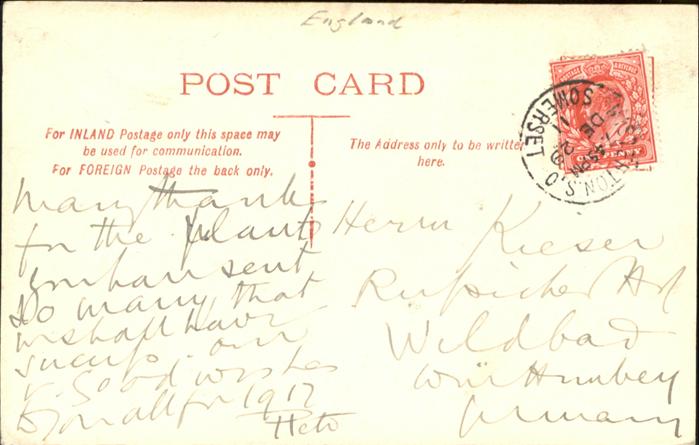 England
POST CARD
For INLAND Postage only this space may
be used for communication.
For FOREIGN Postage the back only.
The Address only to be written
here.
SOMERTON S.O.
SOMERSET
DE 29
11
PENNY
Many thanks
for the plants
you have sent
So many that
we shall have
our
Good wishes
to you all for 1912
Herrn Kieser
Hof
Wildbad
Württemberg
Germany